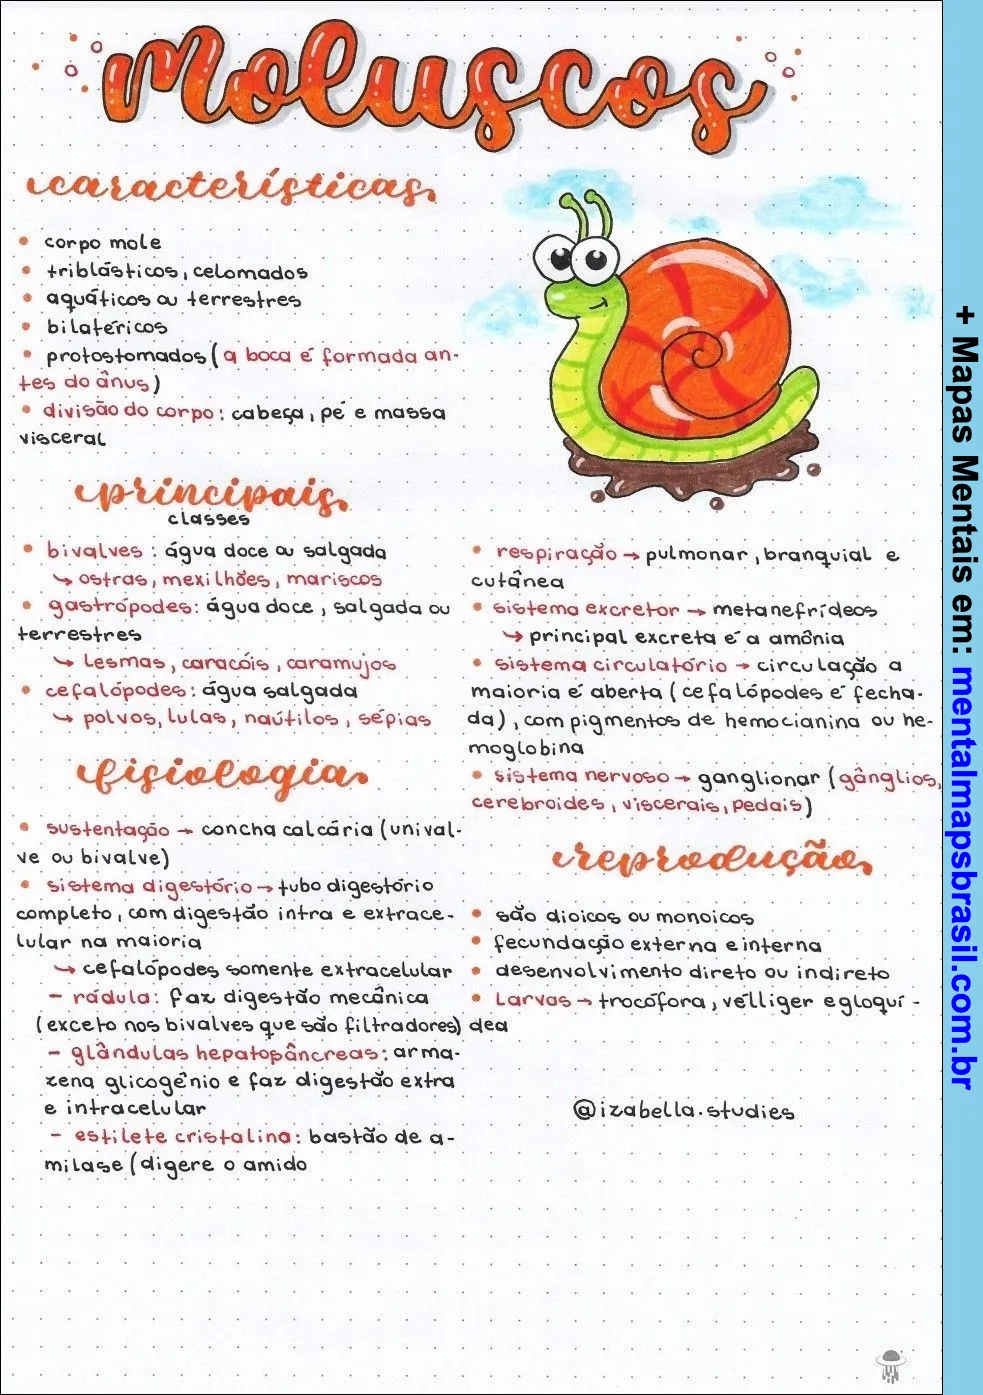 Moluscos
características
• corpo mole
• triblásticos, celomados
• aquáticos ou terrestres
• bilatéricos
• protostomados (a boca é formada an-
tes do ânus)
• divisão do corpo: cabeça, pé e massa
visceral
principais
classes
• bivalves: água doce ou salgada
↳ ostras, mexilhões, mariscos
• gastrópodes: água doce, salgada ou
terrestres
↳ lesmas, caracóis, caramujos
• cefalópodes: água salgada
↳ polvos, lulas, naútilos, sépias
fisiologia
• sustentação → concha calcária (unival-
ve ou bivalve)
• sistema digestório → tubo digestório
completo, com digestão intra e extrace-
lular na maioria
↳ cefalópodes somente extracelular
- rádula: faz digestão mecânica
(exceto nos bivalves que são filtradores)
- glândulas hepatopâncreas: arma-
zena glicogênio e faz digestão extra
e intracelular
- estilete cristalino: bastão de a-
milase (digere o amido
• respiração → pulmonar, branquial e
cutânea
• sistema excretor → metanefrídeos
↳ principal excreta é a amônia
• sistema circulatório → circulação a
maioria é aberta (cefalópodes é fecha-
da), com pigmentos de hemocianina ou he-
moglobina
• sistema nervoso → ganglionar (gânglios,
cerebroides, viscerais, pedais)
reprodução
• são dioicos ou monoicos
• fecundação externa e interna
• desenvolvimento direto ou indireto
• larvas → trocófora, vélliger e gloquí-
dea
@izabella.studies
+ Mapas Mentais em: mentalmapsbrasil.com.br